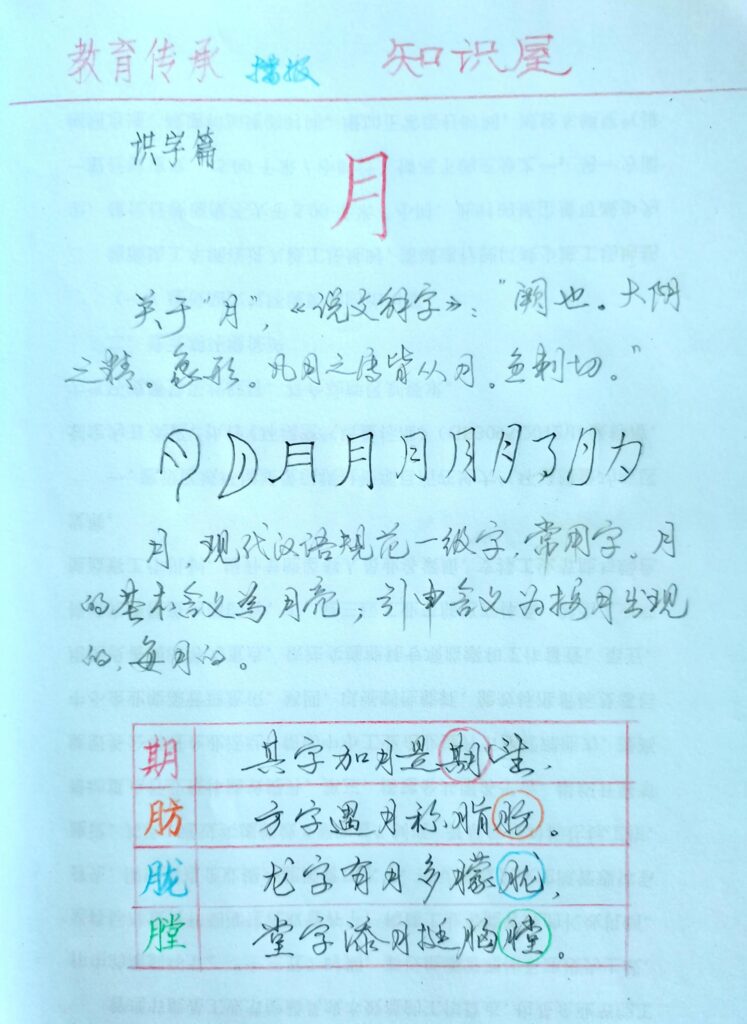 教育传承 播报 知识屋
识字篇
月
关于"月",《说文解字》:"阙也。大阴
之精。象形。凡月之属皆从月。鱼利切。"
月 现代汉语规范一级字,常用字。月
的基本含义為月亮;引申含义为按月出现
的,每月的。
期 其字加月是期
肪 方字遇月称脂肪。
胧 龙字有月多朦胧,
膛 堂字添月挺胸膛。